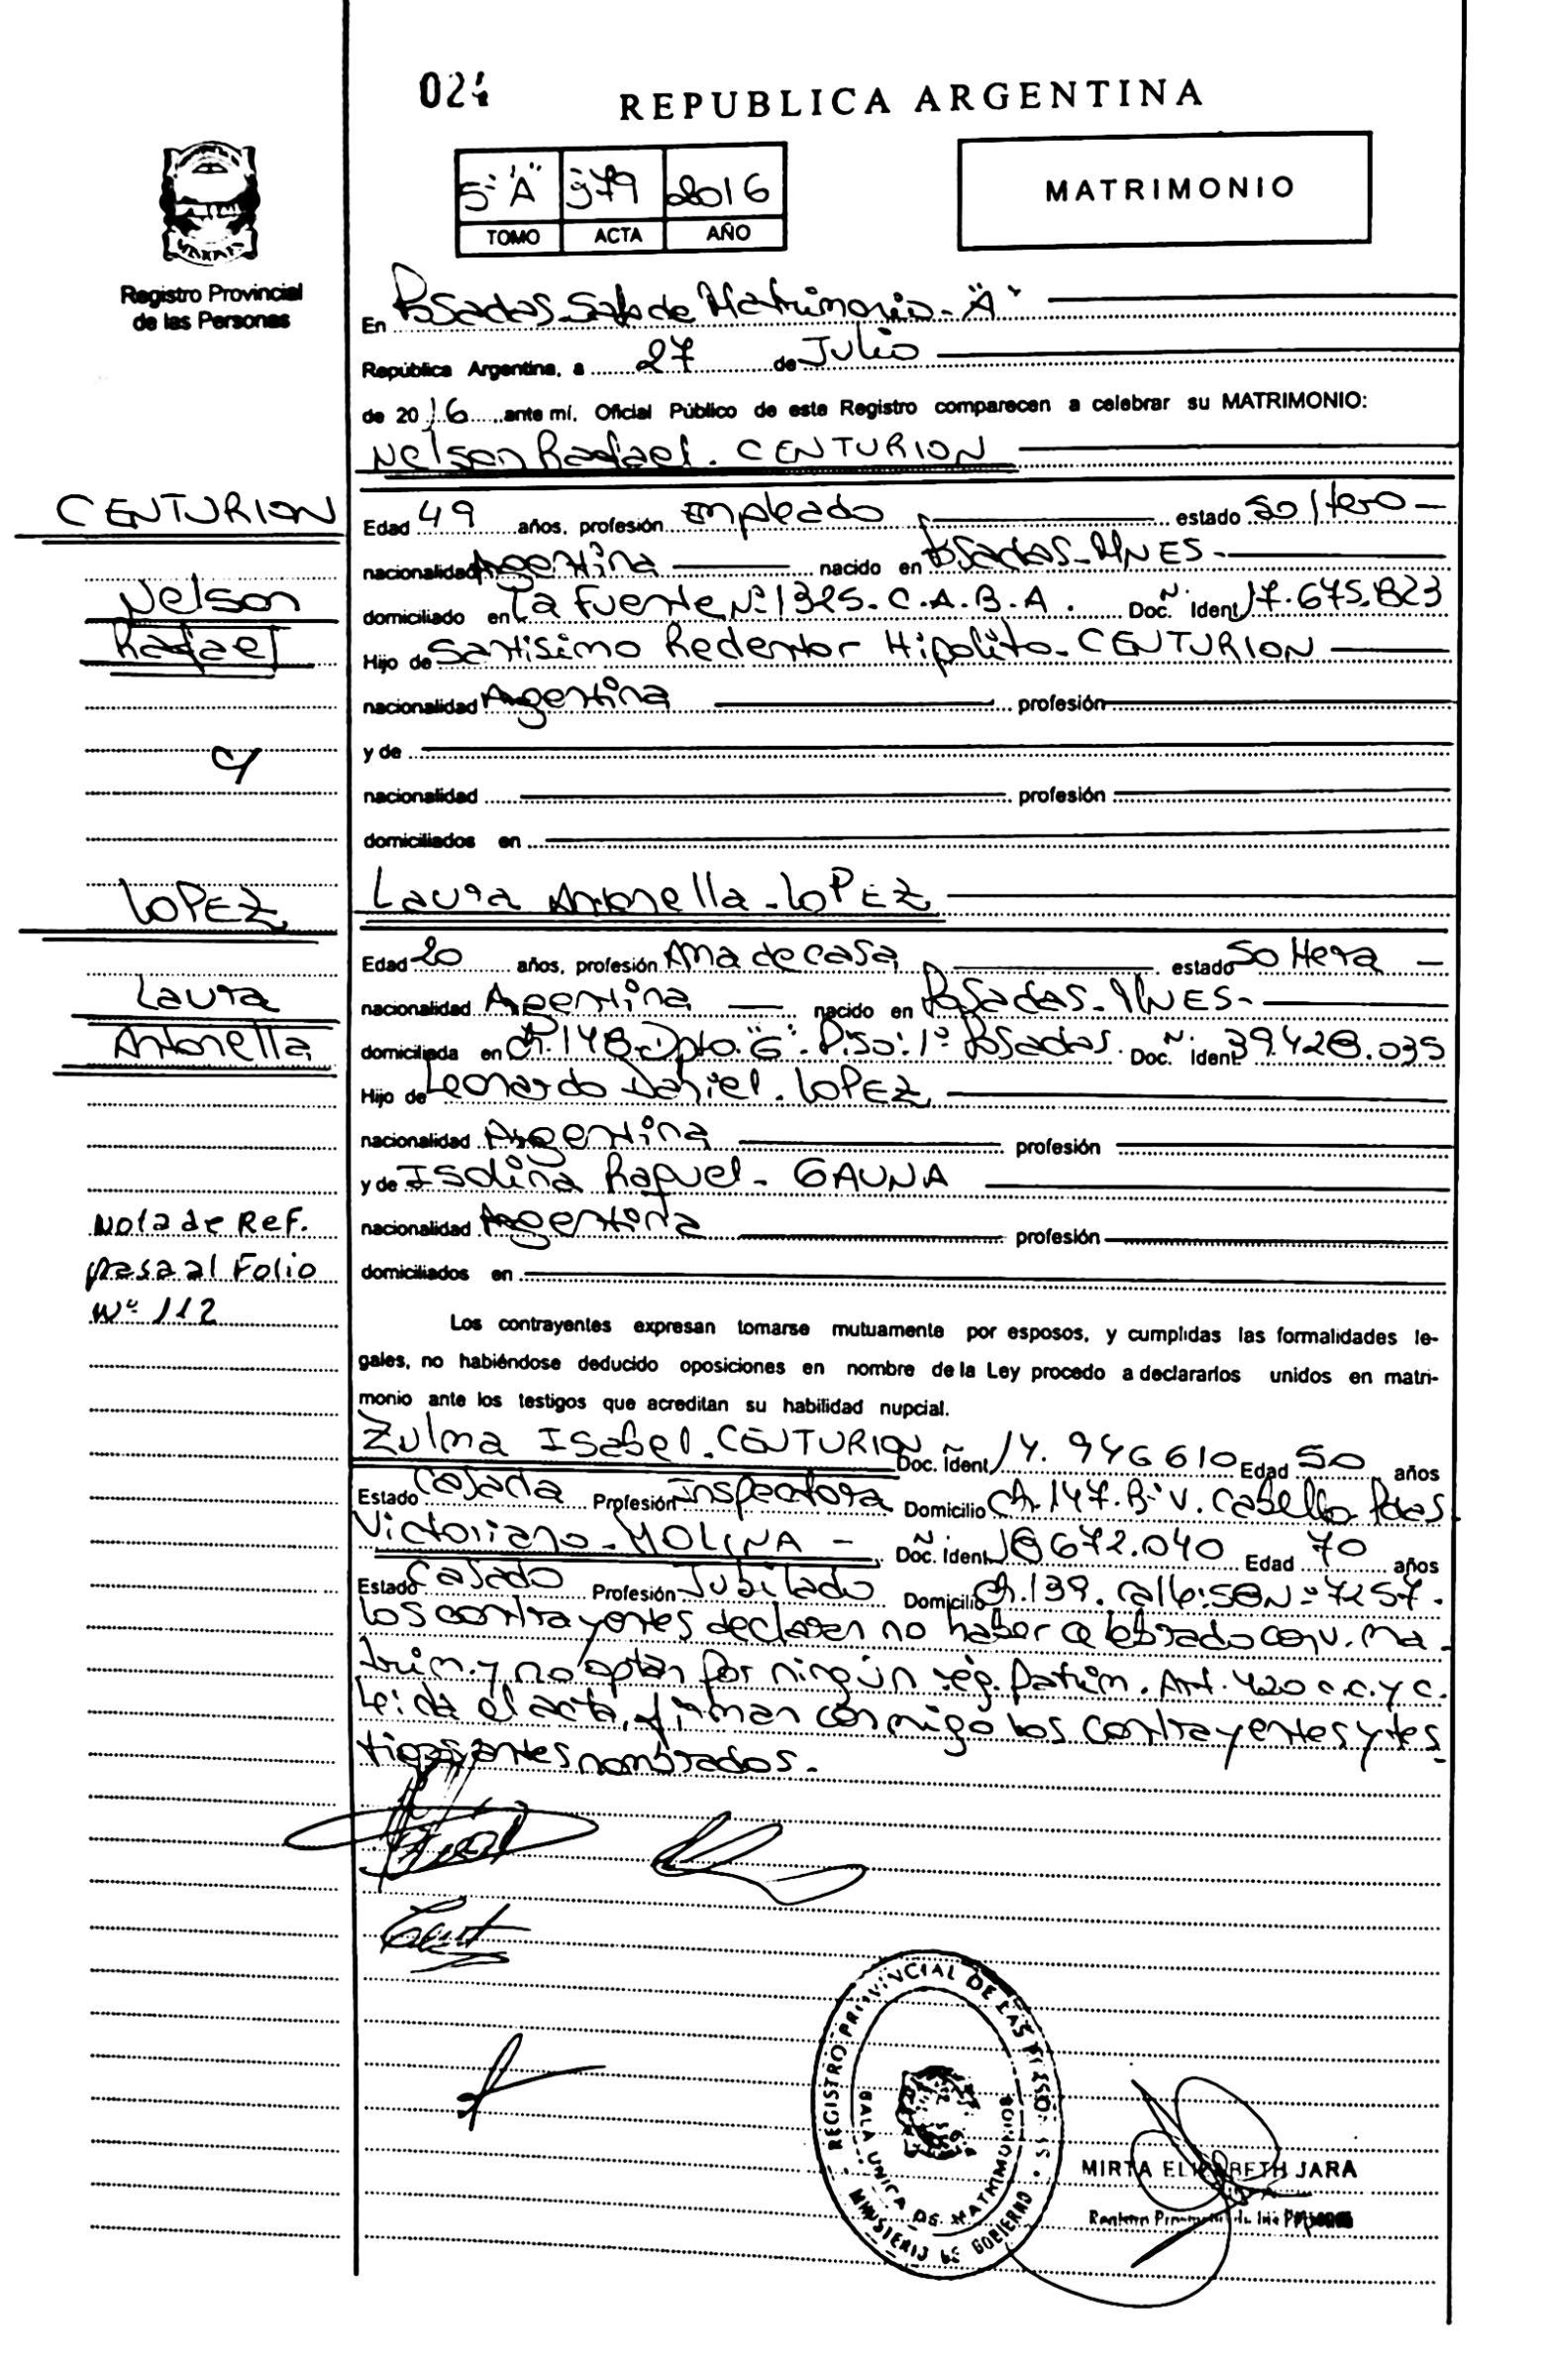 024
REPUBLICA ARGENTINA
5º "A" 979 2016
TOMO ACTA AÑO
MATRIMONIO
Registro Provincial
de las Personas
En Posadas Sala de Matrimonio - "A"
República Argentina, a 27 de Julio
de 2016 ante mí, Oficial Público de este Registro comparecen a celebrar su MATRIMONIO:
Nelson Rafael. CENTURION
CENTURION
Nelson
Rafael
y
LOPEZ
Laura
Antonella
Nota de Ref.
pasa al Folio
Nº 112
Edad 49 años, profesión Empleado estado Soltero -
nacionalidad Argentina nacido en Posadas - MNES -
domiciliado en La Fuente Nº 1325. C.A.B.A. Doc. Ident Nº 17.675.823
Hijo de Santisimo Redentor Hipolito - CENTURION
nacionalidad Argentina profesión
y de
nacionalidad profesión
domiciliados en
Laura Antonella - LOPEZ
Edad 20 años, profesión Ama de casa estado Soltera -
nacionalidad Argentina nacido en Posadas - MNES -
domiciliada en Ch. 148 - Dpto. "G". Piso: 1º Posadas. Doc. Ident Nº 39.428.035
Hijo de Leonardo Daniel. LOPEZ
nacionalidad Argentina profesión
y de Isolina Raquel - GAUNA
nacionalidad Argentina profesión
domiciliados en
Los contrayentes expresan tomarse mutuamente por esposos, y cumplidas las formalidades le-
gales, no habiéndose deducido oposiciones en nombre de la Ley procedo a declararlos unidos en matri-
monio ante los testigos que acreditan su habilidad nupcial.
Zulma Isabel. CENTURION Doc. Ident Nº 14.946610 Edad 50 años
Estado Casada Profesión Inspectora Domicilio Ch. 147. Bº V. Cabello Pdas.
Victoriano - MOLINA - Doc. Ident Nº 8672.040 Edad 70 años
Estado Casado Profesión Jubilado Domicilio Ch. 139. Calle: 50 Nº 7257.
Los contrayentes declaran no haber celebrado conv. ma-
trim. y no optan por ningún reg. Patrim. Art. 420 c.c. y c.
Leida el acta, firman conmigo los contrayentes y tes-
tigos antes nombrados.
REGISTRO PROVINCIAL DE LAS PERSONAS
SALA UNICA DE MATRIMONIOS
MINISTERIO DE GOBIERNO
MIRTA ELIZABETH JARA